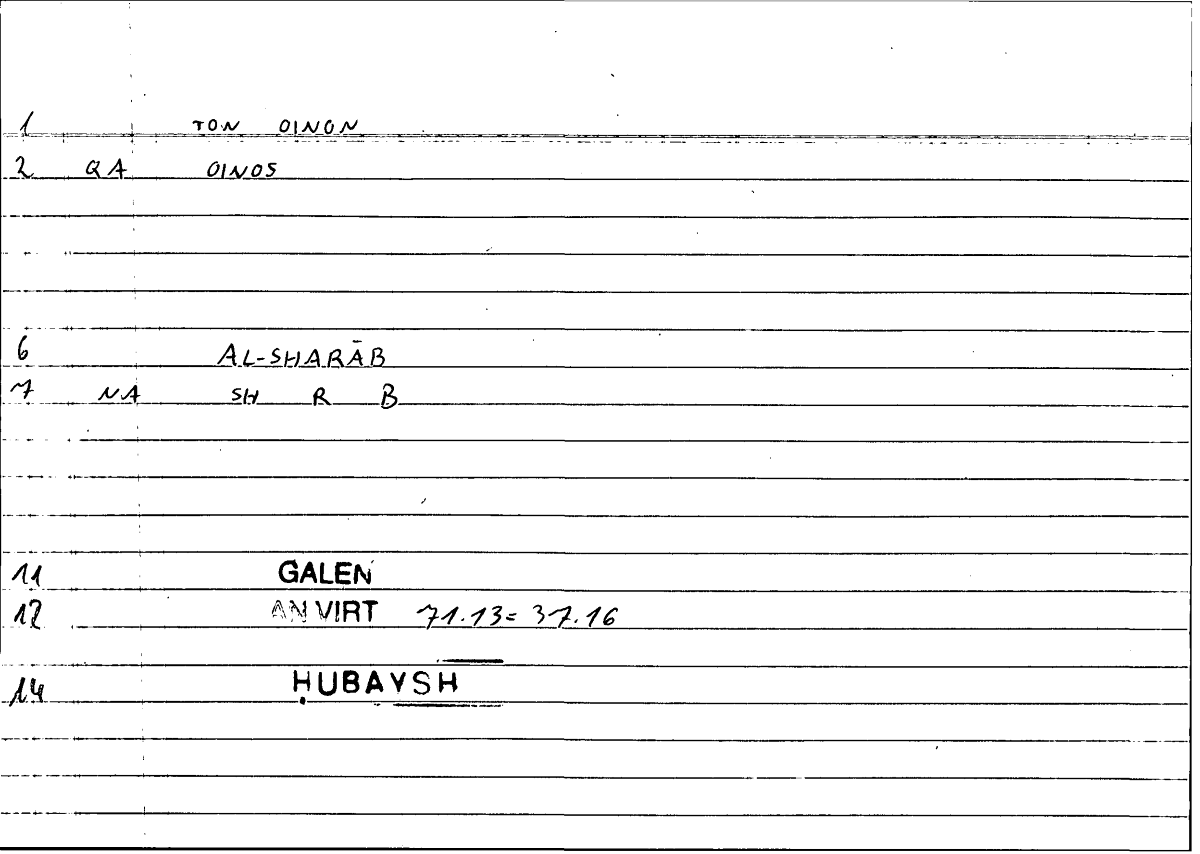 1 TON OINON
2 QA OINOS
6 AL-SHARĀB
7 NA SH R B
11 GALEN
12 AN VIRT 71.13= 37.16
14 ḤUBAYSH